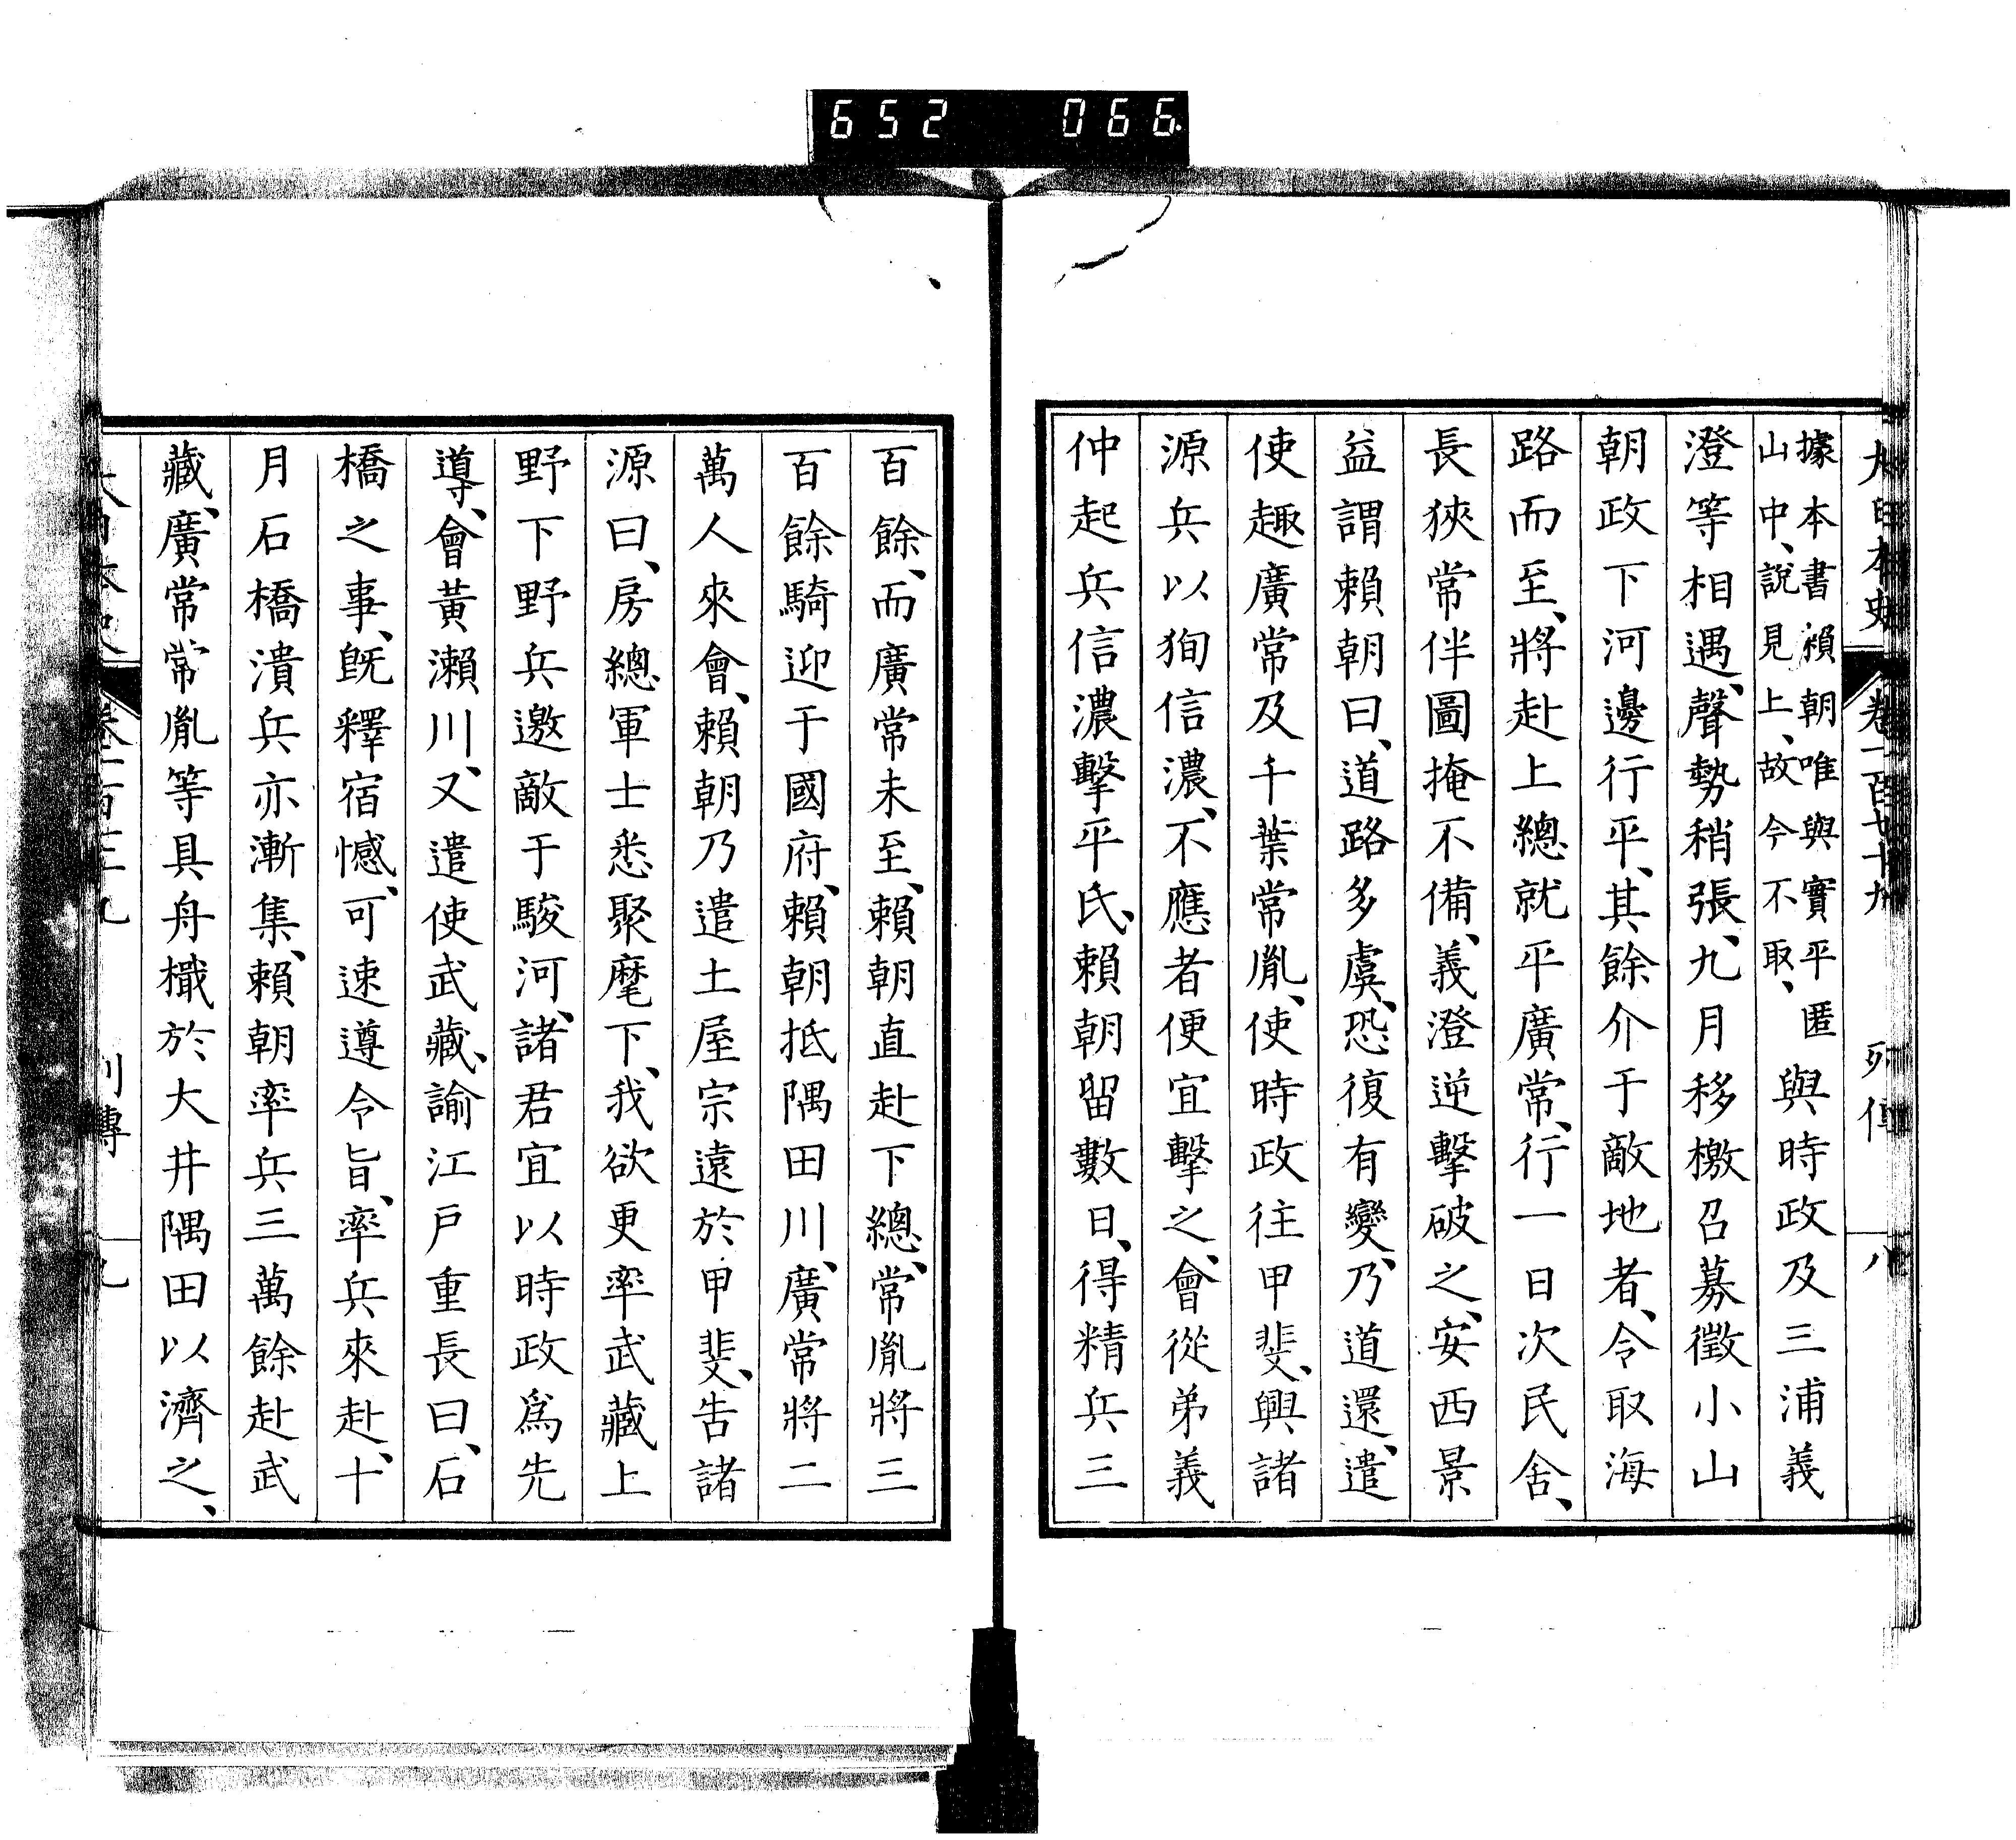 652 066
大日本史 卷一百七十九 列傳 八
據本書、賴朝唯與實平匿
山中、說見上、故今不取、
與時政及三浦義
澄等相遇、聲勢稍張、九月移檄召募徵小山
朝政下河邊行平、其餘介于敵地者、令取海
路而至、將赴上總就平廣常、行一日次民舍、
長狹常伴圖掩不備、義澄逆擊破之、安西景
益謂賴朝曰、道路多虞、恐復有變、乃道還、遣
使趣廣常及千葉常胤、使時政往甲斐、興諸
源兵以徇信濃、不應者便宜擊之、會從弟義
仲起兵信濃擊平氏、賴朝留數日、得精兵三
百餘、而廣常未至、賴朝直赴下總、常胤將三
百餘騎迎于國府、賴朝抵隅田川、廣常將二
萬人來會、賴朝乃遣土屋宗遠於甲斐、告諸
源曰、房總軍士悉聚麾下、我欲更率武藏上
野下野兵邀敵于駿河、諸君宜以時政爲先
導、會黃瀨川、又遣使武藏、諭江戶重長曰、石
橋之事、旣釋宿憾、可速遵令旨、率兵來赴、十
月石橋潰兵亦漸集、賴朝率兵三萬餘赴武
藏、廣常常胤等具舟檝於大井隅田以濟之、
列傳 九